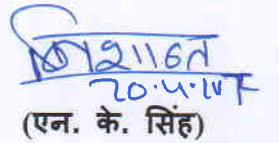 20.4.17
(एन. के. सिंह)